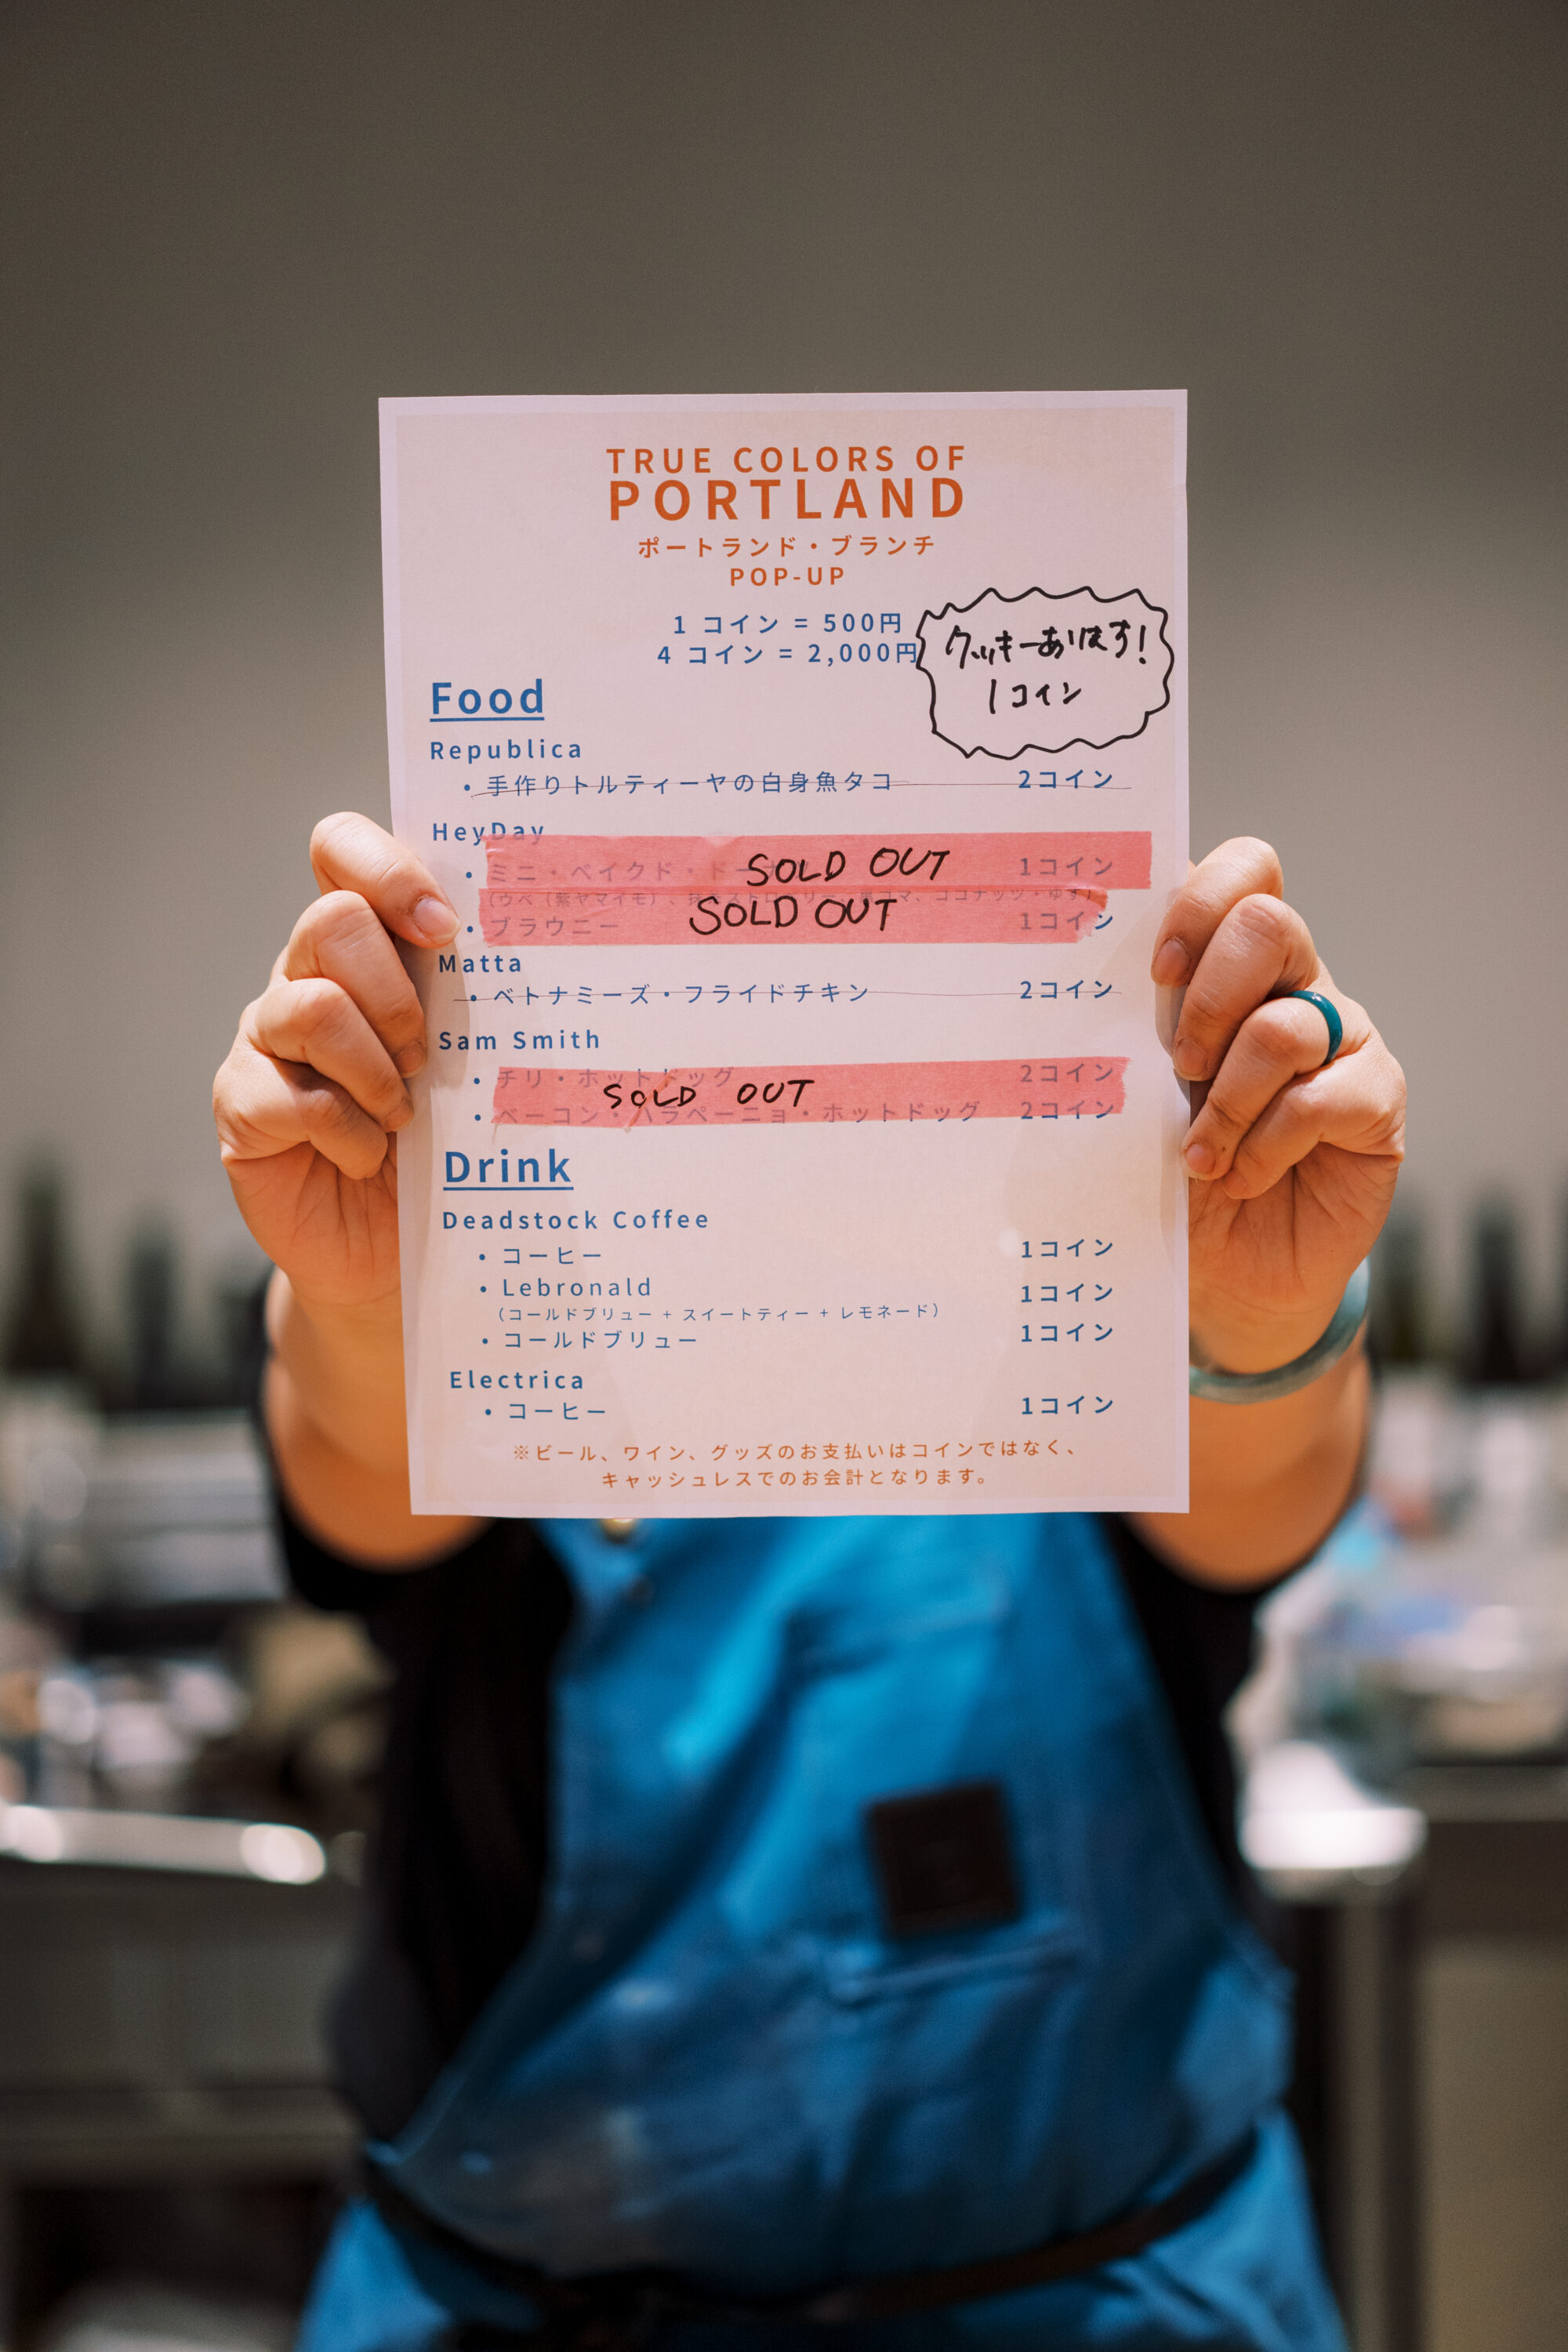 TRUE COLORS OF
PORTLAND
ポートランド・ブランチ
POP-UP
1 コイン = 500円
4 コイン = 2,000円
クッキーあります!
1コイン
Food
Republica
• 手作りトルティーヤの白身魚タコ 2コイン
HeyDay
• ミニ・ベイクド・ドーナツ SOLD OUT 1コイン
(ウベ(紫ヤマイモ)、抹茶ストロベリー、黒ゴマ、ココナッツ・ゆず)
• ブラウニー SOLD OUT 1コイン
Matta
• ベトナミーズ・フライドチキン 2コイン
Sam Smith
• チリ・ホットドッグ 2コイン
SOLD OUT
• ベーコン・ハラペーニョ・ホットドッグ 2コイン
Drink
Deadstock Coffee
• コーヒー 1コイン
• Lebronald 1コイン
(コールドブリュー + スイートティー + レモネード)
• コールドブリュー 1コイン
Electrica
• コーヒー 1コイン
※ビール、ワイン、グッズのお支払いはコインではなく、
キャッシュレスでのお会計となります。